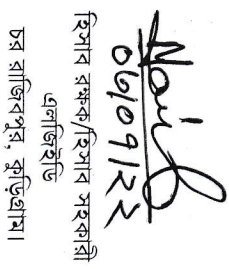 ০৬/০৭/২২
হিসাব রক্ষক/হিসাব সহকারী
এলজিইডি
চর রাজিবপুর, কুড়িগ্রাম।